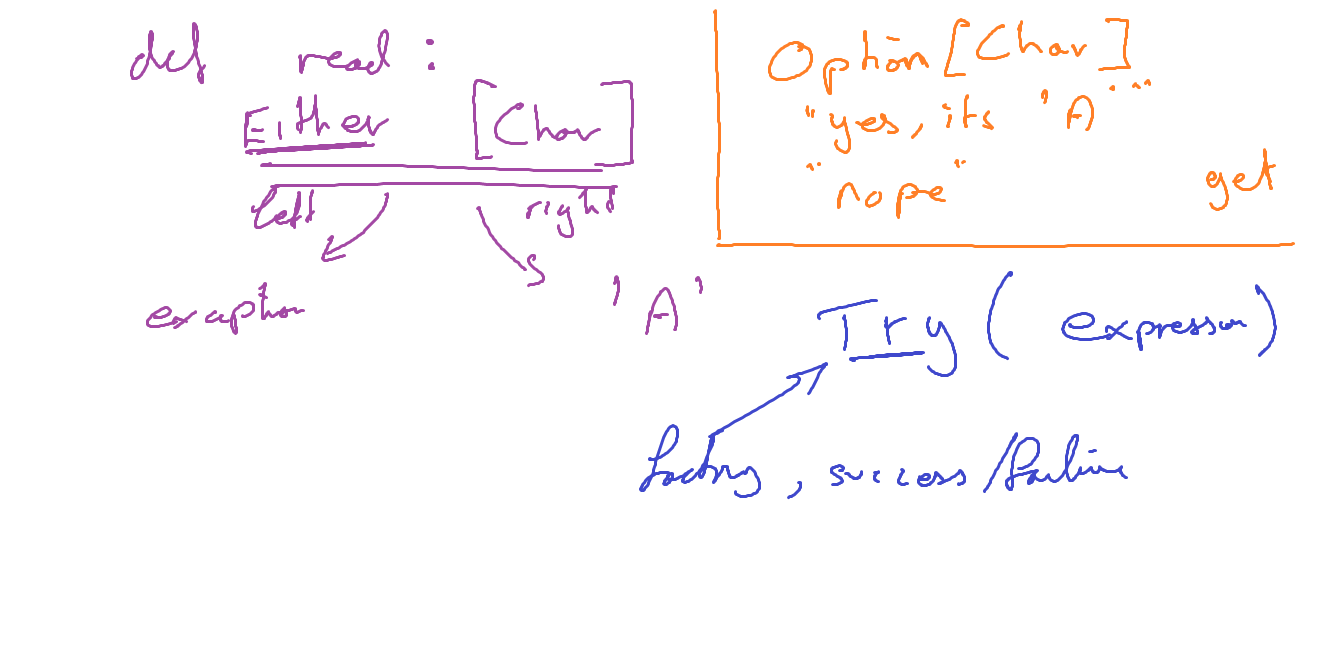 def read :
Either [Char]
left right
exception 'A'
Option [Char]
"yes, its 'A'"
"nope"
get
Try ( expression )
factory, success/failure